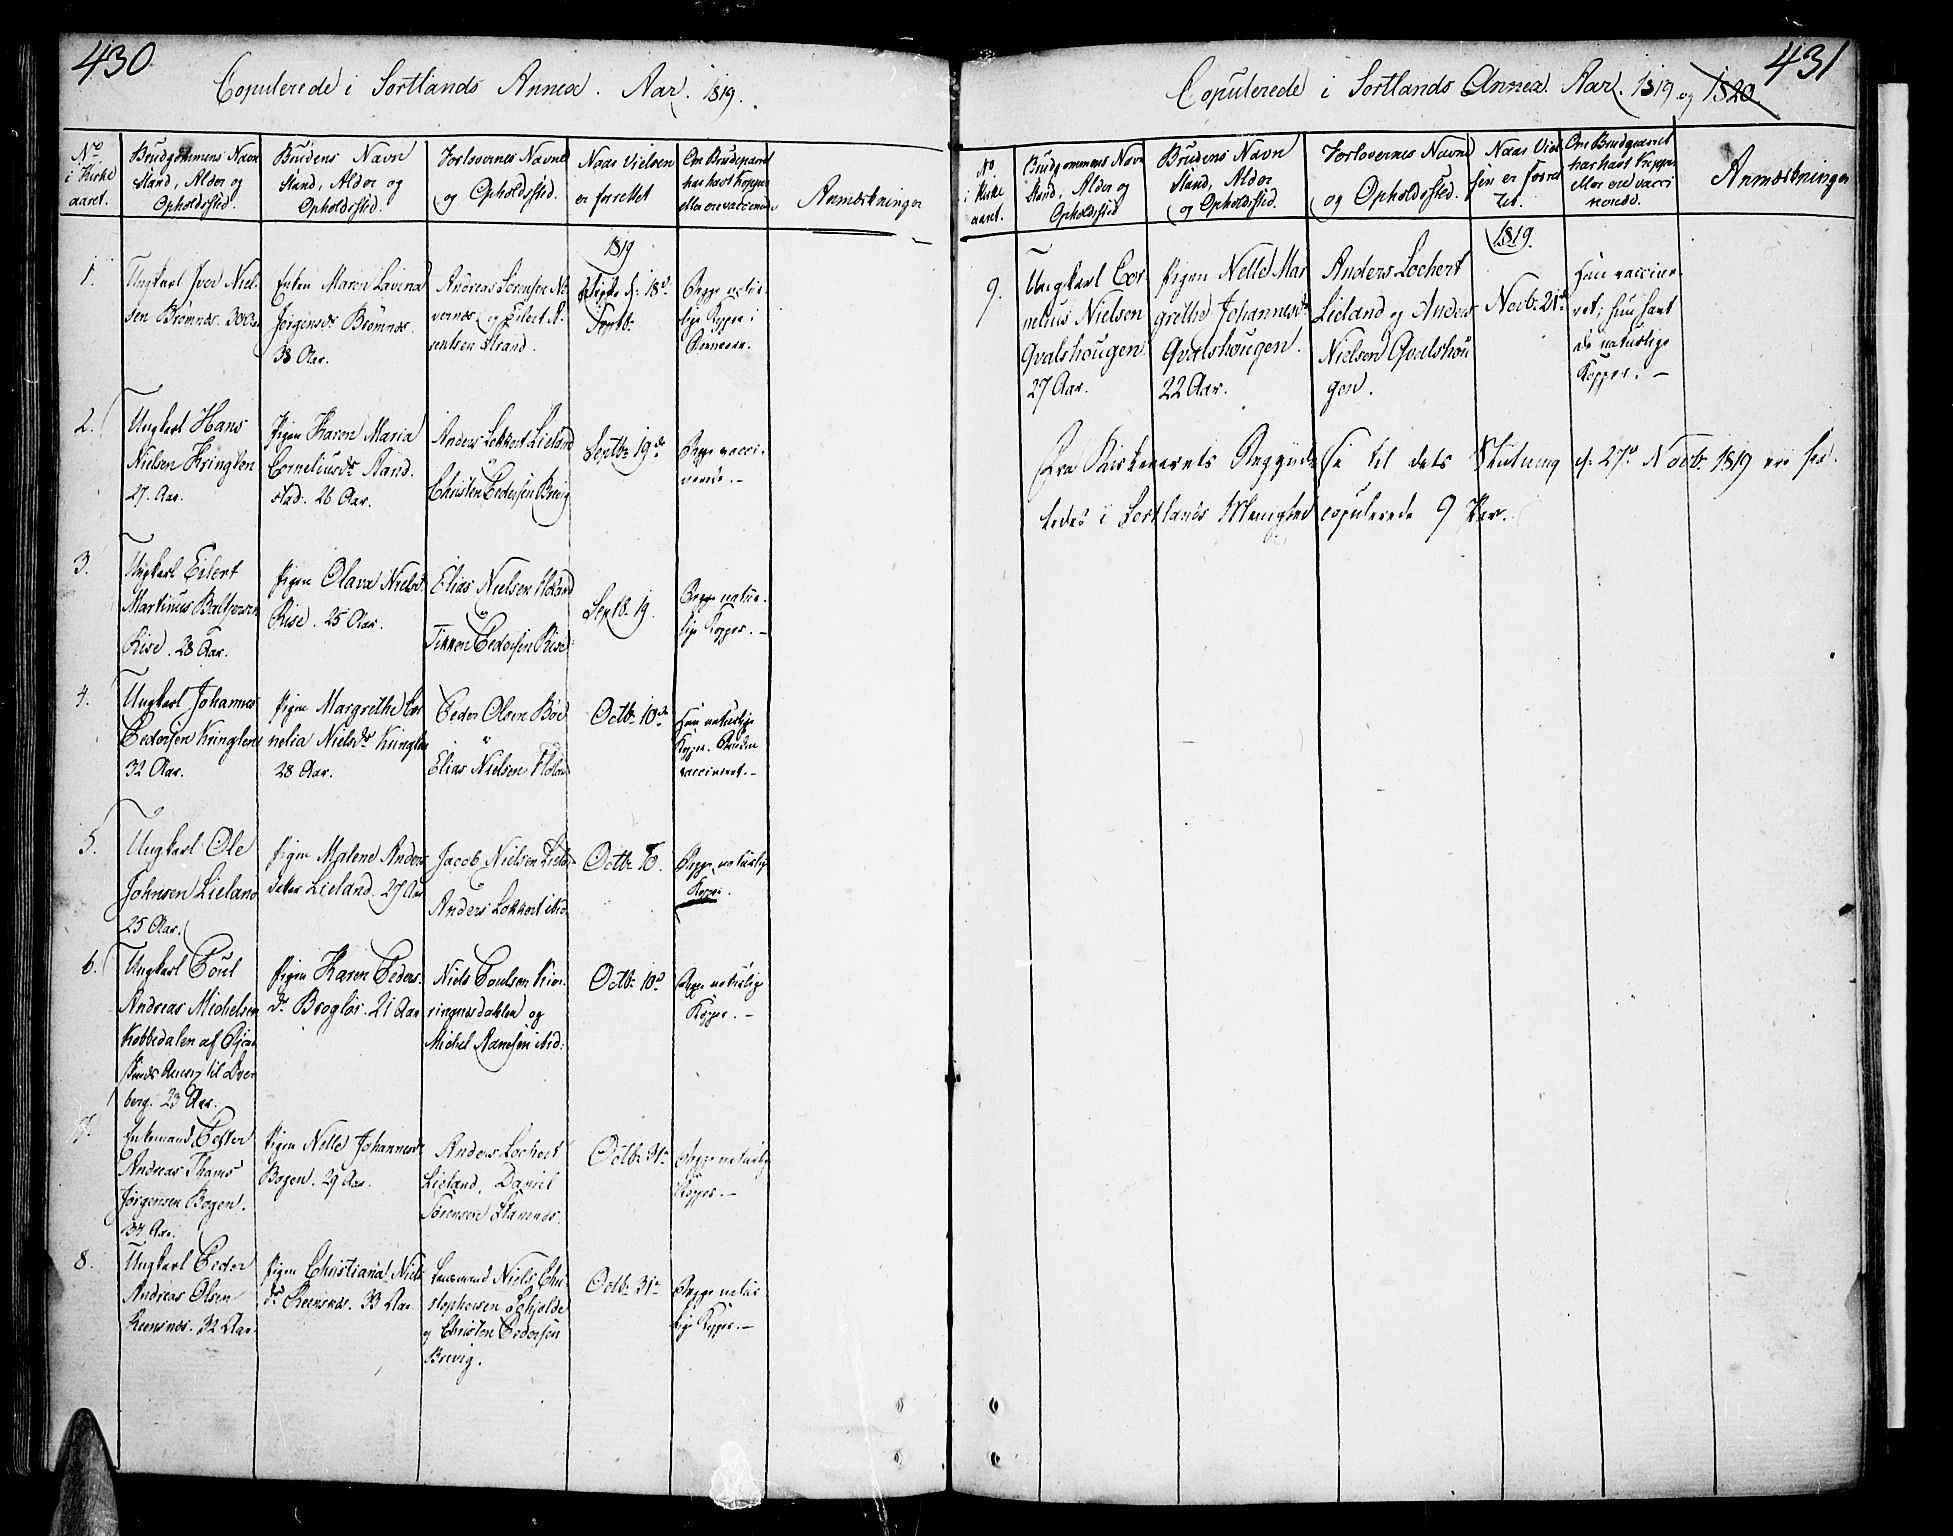 430
Copulerede i Sortlands Annex. Aar. 1819.
No
i Kirke
aaret.
Brudgommens Navn
Stand, Alder og
Opholdssted.
Brudens Navn
Stand, Alder og
Opholdssted.
Forlovernes Navne
og Opholdssted.
Naar Vielsen
er forrettet
Om Brudeparret
har havt Kopper
eller ere vaccinerede
Anmærkninger
1819
1.
Ungkarl Iver Niel-
sen Bremnes. 30 Aar
Enken Maren Lavina
Jørgensdr Bremnes.
38 Aar.
Andreas Sørensen
vernæs og Eilert
Strand.
d. 18de
Septbr
Begge natur-
lige Kopper i
2.
Ungkarl Hans
Nielsen Kringlen
27. Aar.
Pigen Karen Maria
Corneliusdr Aand-
stad. 26 Aar.
Anders Lokkert Lieland
og
Christen Pedersen Brevig
Septbr 19de
Begge vacci-
nerede.-
3.
Ungkarl Eilert
Martinus Baltzersen
Rise. 28 Aar.
Pigen Olava Nielsdr
Rise. 25 Aar.
Elias Nielsen Holand
og
Pedersen Rise
Septb. 19.
Begge natur-
lige Kopper.-
4.
Ungkarl Johannes
Pedersen Kringlen
32 Aar.
Pigen Margrethe Cor
nelia Nielsdr Kringlen
28 Aar.
Peder Olsen Bøe
og
Elias Nielsen Holan
Octbr 10de
Han naturlige
Kopper. Bruden
vaccineret.-
5.
Ungkarl Ole
Johnsen Lieland
25 Aar.
Pigen Malene Anders
datter Lieland. 27 Aar
Jacob Nielsen Liela
og
Anders Lokkert ibid.
Octbr 10.
Begge naturlige
Kopper.
6.
Ungkarl Poul
Andreas Michelsen
Kobbedalen af
Annex til Dver
berg. 23 Aar.
Pigen Karen Peders
dr Brogløs. 21 Aar
Niels Poulsen Kin-
ringnesdahlen og
Michel Hansen ibid:
Octbr 10de
Begge naturlige
Kopper.-
7.
Enkemand Petter
Andreas Thams
Jørgensen Bogen.
34 Aar.
Pigen Nelle Johannesdr
Bogen. 29 Aar.
Anders Lochert
Lieland, Daniel
Sørensen Stamnes.
Octbr 31te
Begge naturlige
Kopper.-
8.
Ungkarl Peder
Andreas Olsen
Reensnes. 32 Aar.
Pigen Christiana Niels
dr Reensnes. 33 Aar.
Lensmand Niels Chri-
stophersen Schjolde
og Christen Pedersen
Brevig.
Octbr 31te
Begge natur
lige Kopper.-
431
Copulerede i Sortlands Annex. Aar. 1819 og 1820.
No
i Kirke
aaret.
Brudgommens Navn
Stand, Alder og
Opholdssted
Brudens Navn
Stand, Alder
og Opholdssted.
Forlovernes Navne
og Opholdssted.
Naar Viel
sen er forret
tet.
Om Brudeparret
har havt Kopper
eller ere vacci
nerede.
Anmærkninger
1819.
9.
Ungkarl Cor-
nelius Nielsen
Qvalshougen
27 Aar.
Pigen Nelle Mar
grethe Johannesdr
Qvalshougen.
22 Aar.
Anders Lochert
Lieland og Anders
Nielsen Qvalshou
gen.
Novbr 21de
Han vaccine-
ret; hun havt
de naturlige
Kopper.-
Fra Kirkeaarets Begyndelse til dets Slutning d. 27de Novbr 1819 ere saa-
ledes i Sortlands Menighed copulerede 9 Par.